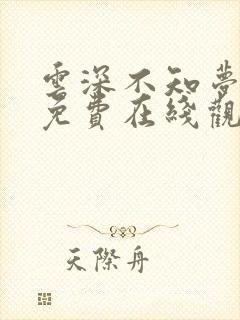 雲深不知夢
免費在綫觀
天際舟